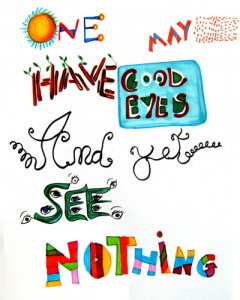 ONE MAY
HAVE GOOD
EYES
And yet
SEE
NOTHING